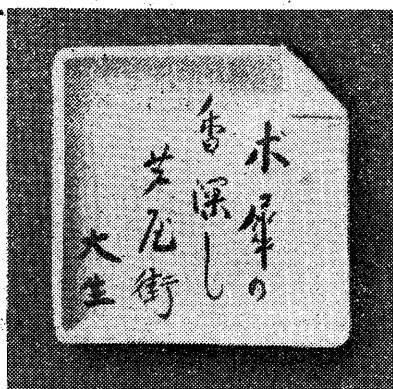 木犀の
香深し
芦屋街
大生